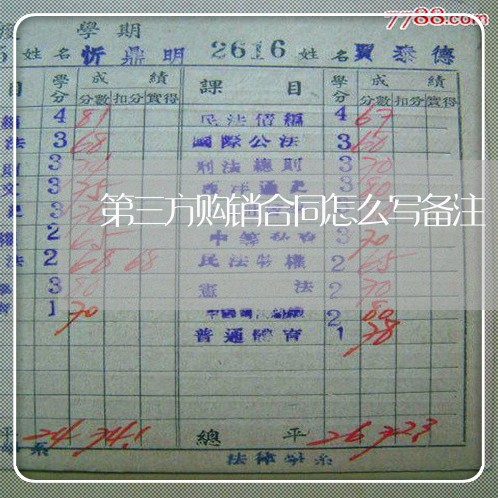 7788.com
學期
姓名 忻鼎明 2616 姓名 賈泰德
目 學分 成績 課目 學分 成績
分數 扣分 實得 分數 扣分 實得
4 81 民法債編 4 67
法 3 68 國際公法 3 60
3 刑法總則 3 70
3 75 3 80
第三方购销合同怎么写备注
2 65 3 70
法 2 68 68 民法物權 2 65
3 80 憲法 2 70
1 70 2 80
普通體育 1 78
平 24 74.1 總平 26 72.3
系 法律學系